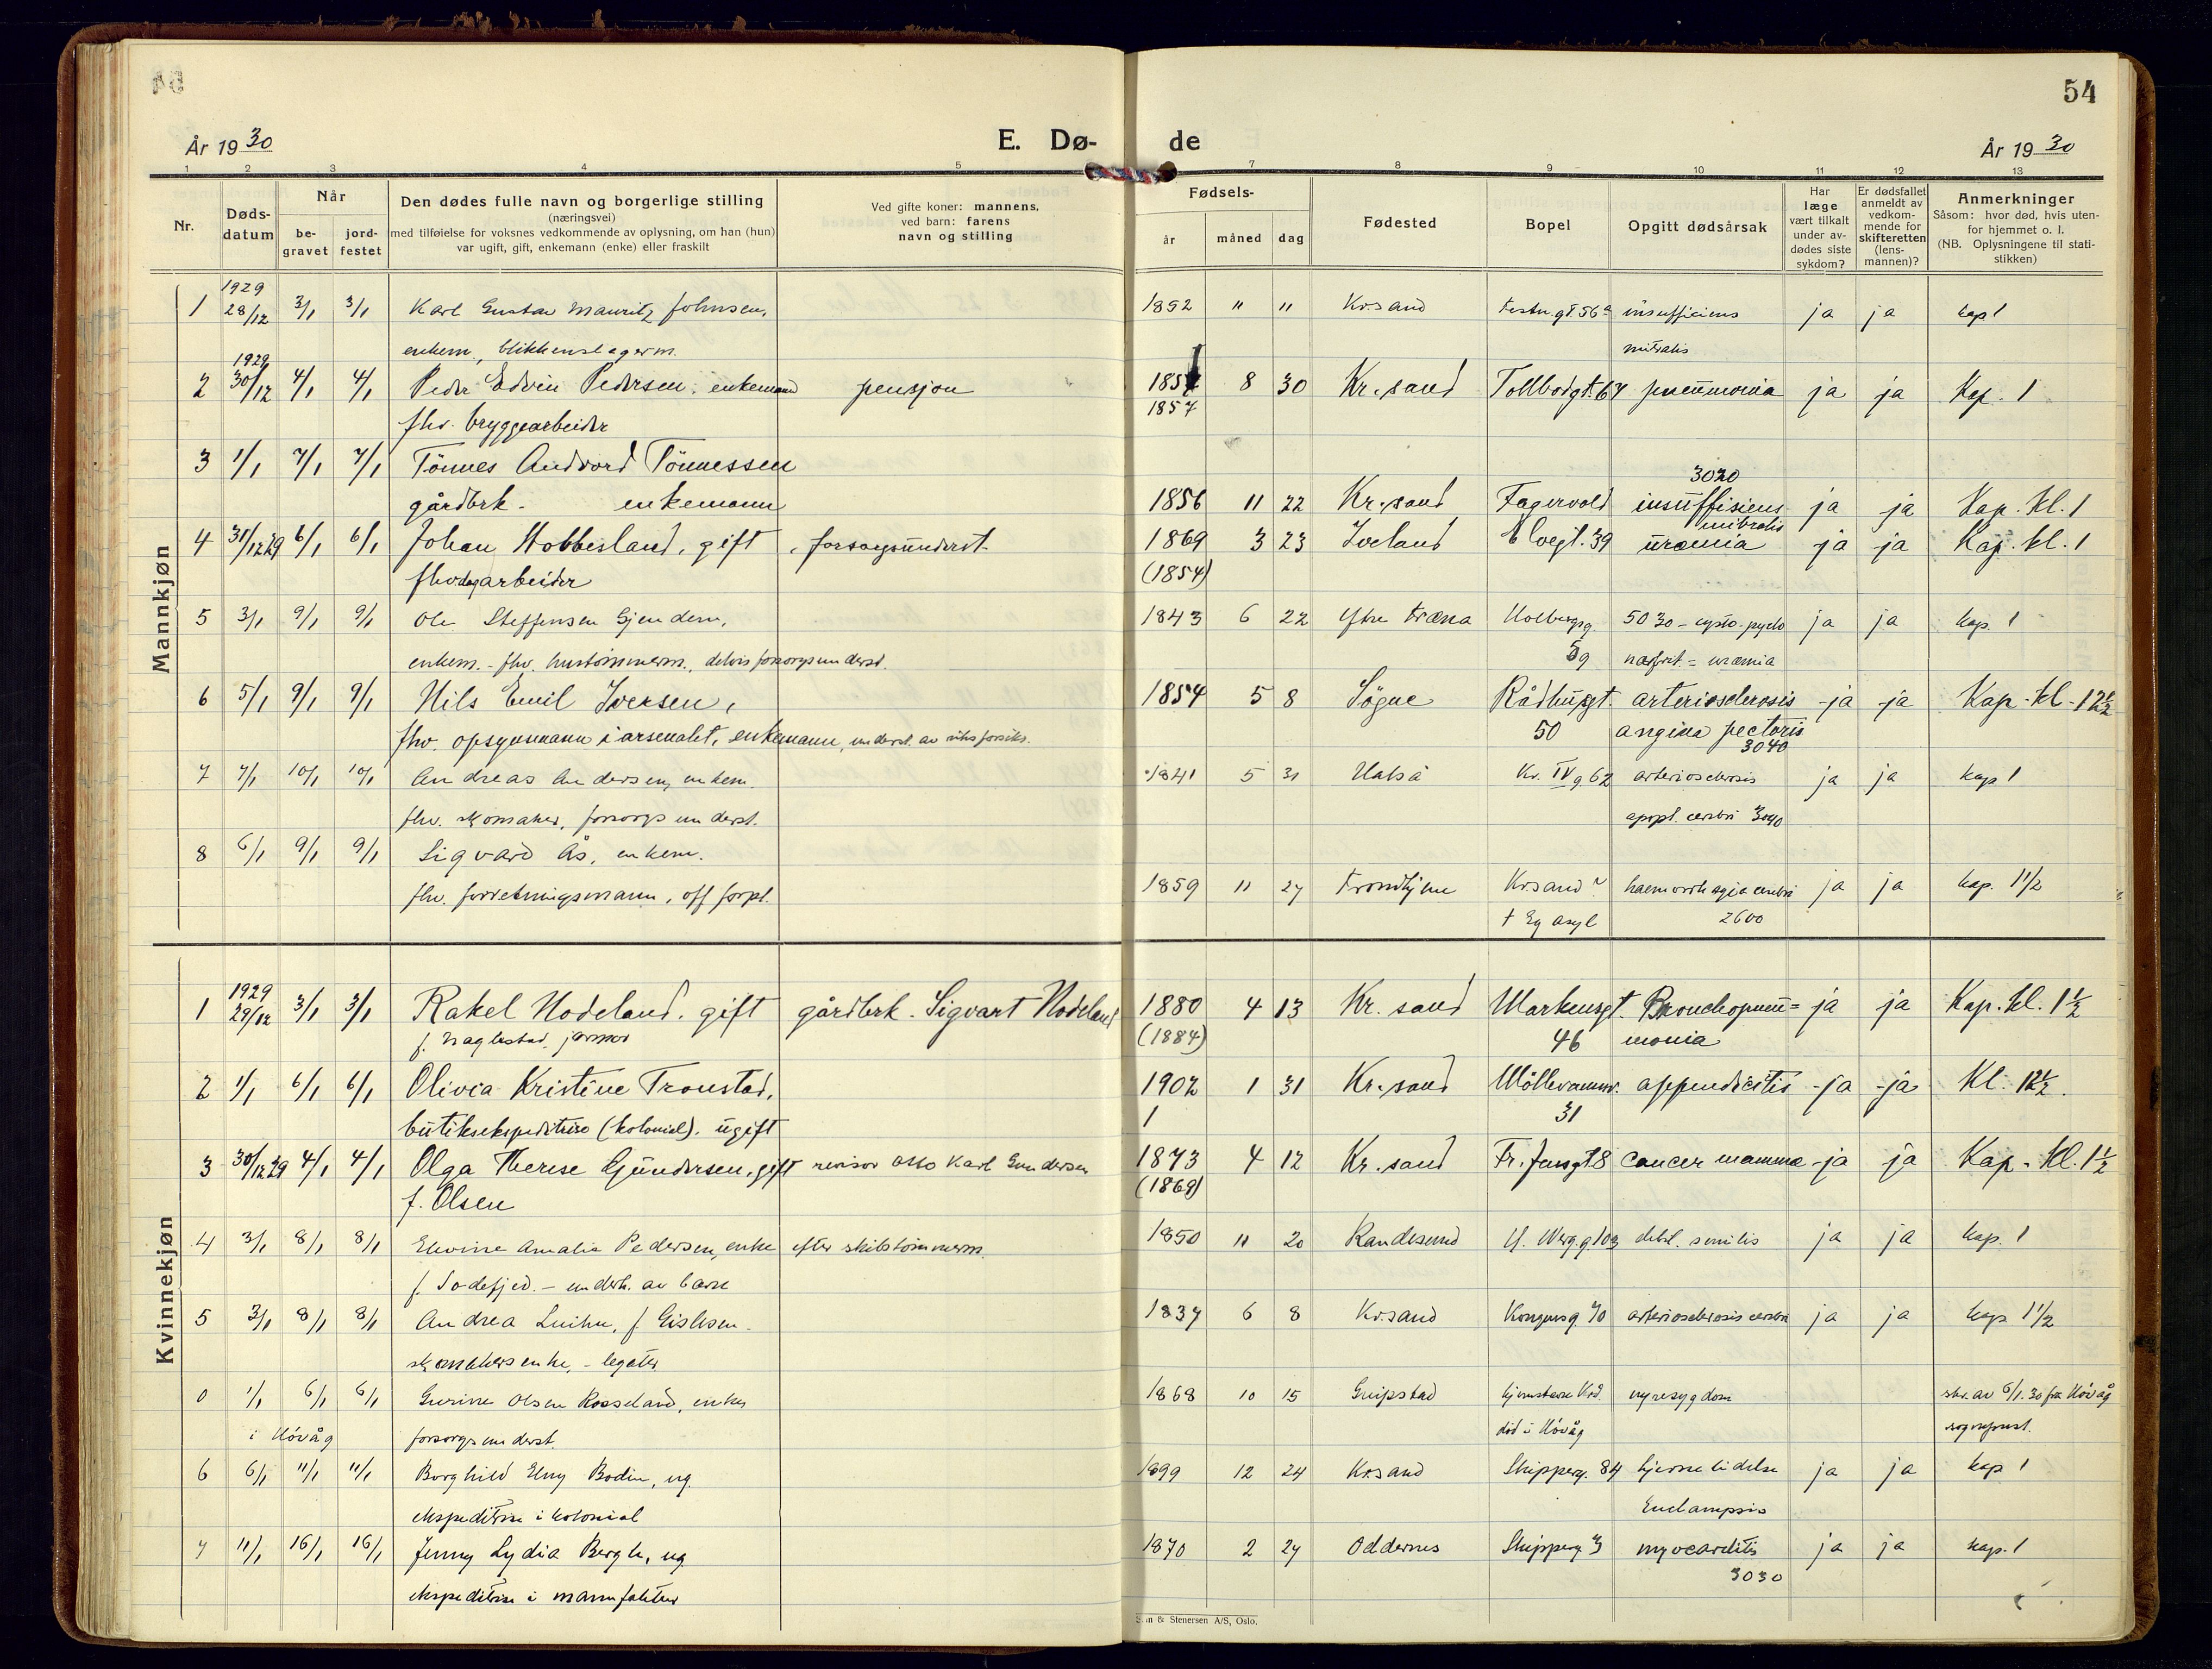 54
År 1930
E. Dø-
de
År 1930
1 2 3 4 5 7 8 9 10 11 12 13
Nr.
Døds-
datum
Når
be-
gravet
jord-
festet
Den dødes fulle navn og borgerlige stilling
(næringsvei)
med tilføielse for voksnes vedkommende av oplysning, om han (hun)
var ugift, gift, enkemann (enke) eller fraskilt
Ved gifte koner: mannens,
ved barn: farens
navn og stilling
Fødsels-
år måned dag
Fødested
Bopel
Opgitt dødsårsak
Har
læge
vært tilkalt
under av-
dødes siste
sykdom?
Er dødsfallet
anmeldt av
vedkom-
mende for
skifteretten
(lens-
mannen)?
Anmerkninger
Såsom: hvor død, hvis uten-
for hjemmet o. l.
(NB. Oplysningene til stati-
stikken)
Mannkjøn
1929
1 28/12 3/1 3/1 Karl Gustav Mauritz Johnsen, 1852 " " Kr.sand Festn.gt 56a insufficiens ja ja kap 1
enkem., blikkenslagerm. mitralis
1929
2 30/12 4/1 4/1 Peder Edvin Pedersen, enkemand pensjon 1857 8 30 Kr.sand Tollbodgt. 67 pneumonia ja ja Kap. 1
fhv. bryggearbeider 1857
3 1/1 7/1 7/1 Tönnes Andvord Tönnessen 3020
gårdbrk. enkemann 1856 11 22 Kr.sand Fagervold insuffisiens ja ja Kap. kl. 1
mitralis
4 31/12 29 6/1 6/1 Johan Hobbesland, gift, forsorgsunderst. 1869 3 23 Iveland Elvegt. 39 uræmia ja ja Kap. kl. 1
fhv. dagarbeider (1854)
5 3/1 9/1 9/1 Ole Steffensen Gjendem, 1843 6 22 Ytre Fræna Holbergsg. 5030 - cysto-pyelo ja ja kap 1
enkem. - fhv. hustömmerm., delvis forsorgsunderst. 59 nefrit = uræmia
6 5/1 9/1 9/1 Nils Emil Iversen, 1854 5 8 Søgne Rådhusgt. arteriosclerosis ja ja Kap - kl - 12 1/2
fhv. opsynsmann i arsenalet, enkemann, underst. av riksforsikr. 50 angina pectoris
3040
7 7/1 10/1 10/1 Andreas Andersen, enkem. 1841 5 31 Halså Kr. IV g. 62 arteriosclerosis ja ja kap 1
fhv. skomaker, forsorgsunderst. apopl. cerebri 3040
8 6/1 9/1 9/1 Sigvard Ås, enkem.
fhv. forretningsmann, off forpl. 1859 11 27 Trondhjem Kr.sand haemorrhagia cerebri ja ja kap. 1 1/2
† Eg asyl 2600
Kvinnekjøn
1929
1 29/12 3/1 3/1 Rakel Nodeland, gift gårdbrk. Sigvart Nodeland 1880 4 13 Kr.sand Markensgt. Bronchopneu= ja ja Kap. kl. 1 1/2
f. Naglestad, jormor (1884) 46 monia
2 1/1 6/1 6/1 Olivia Kristine Tronstad, 1902 1 31 Kr.sand Möllevannsv. appendicitis ja ja Kl. 12 1/2.
butiksekspeditrise (kolonial). ugift 1 31
3 30/12 29 4/1 4/1 Olga Therese Gundersen, gift revisor Otto Karl Gundersen 1873 4 12 Kr.sand Fr. Jensgt 8 cancer mamma ja ja Kap - kl. 1 1/2
f. Olsen (1869)
4 3/1 8/1 8/1 Elevine Amalie Pedersen, enke efter skibstömmerm. 1850 11 20 Randesund H. Werg.g 103 debil. senilis ja ja kap. 1
f. Sodefjed. - underh. av barn
5 3/1 8/1 8/1 Andrea Luihn, f. Gislesen. 1837 6 8 Kr.sand Kongensg 70 arteriosclerosis cerebri ja ja kap 1 1/2
skomakers enke, - legater
0 1/1 6/1 6/1 Gurine Olsen Rosseland, enke, 1868 10 15 Greipstad hjemstavn Krsd. nyresygdom skr. av 6/1.30 fra Hövåg
i Hövåg forsorgsunderst. död i Hövåg sogneprest.
6 6/1 11/1 11/1 Borghild Elny Bodin, ug. 1899 12 24 Kr.sand Skipperg. 84 hjernelidelse ja ja kap 1
ekspeditrise i kolonial Enclampsis
7 11/1 16/1 16/1 Jenny Lydia Bergh, ug 1870 2 27 Oddernes Skipperg 3 myocarditis ja ja kap. 1
ekspeditrise i manufaktur 3030
& Stenersen A/S, Oslo.